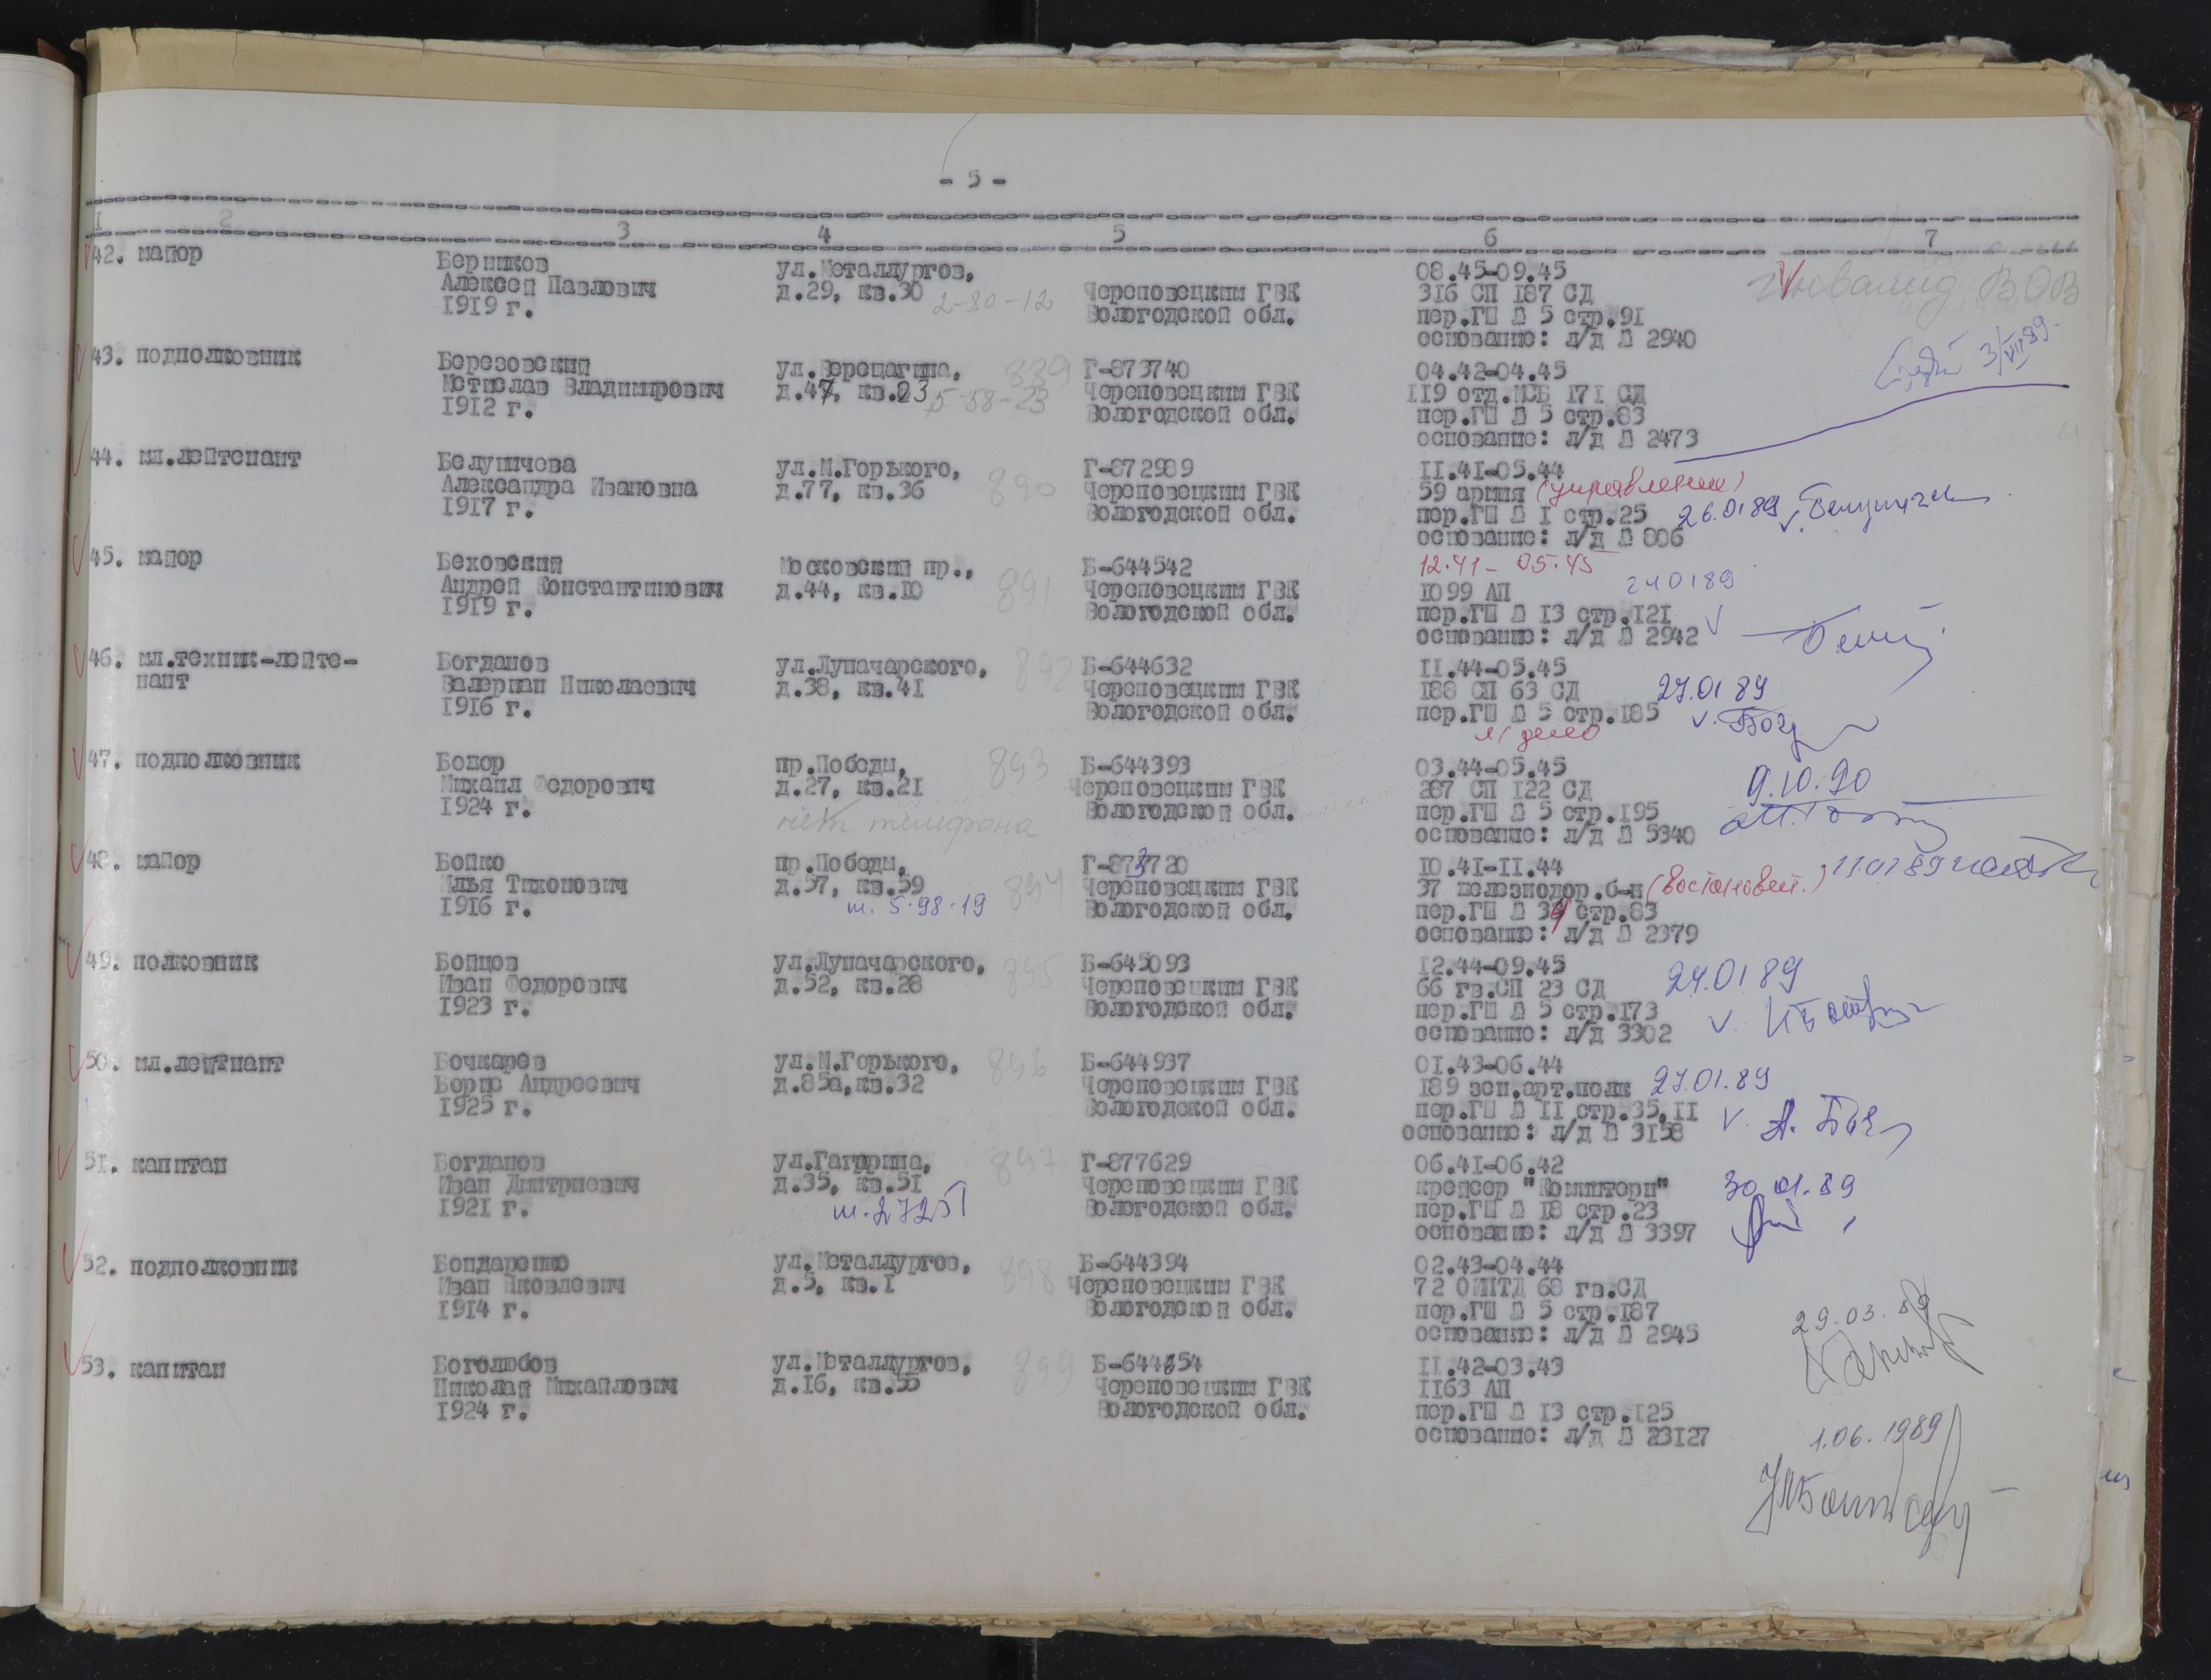 - 5 -
1 2 3 4 5 6 7
42. майор Берников ул.Металлургов, 08.45-09.45 инвалид В.О.В
Алексей Павлович д.29, кв.30 2-80-12 Череповецким ГВК 316 СП 187 СД
1919 г. Вологодской обл. пер.ГШ № 5 стр.91
основание: л/д № 2940
43. подполковник Березовский ул.Верещагина, 889 Г-873740 04.42-04.45 3/VII 89
Мстислав Владимирович д.47, кв.23 5-58-23 Череповецким ГВК 119 отд.МСБ 171 СД
1912 г. Вологодской обл. пер.ГШ № 5 стр.83
основание: л/д № 2473
44. мл.лейтенант Белуничева ул.М.Горького, 890 Г-872989 11.41-05.44
Александра Ивановна д.77, кв.36 Череповецким ГВК 59 армия (управление)
1917 г. Вологодской обл. пер.ГШ № 1 стр.25 26.01 89
основание: л/д № 806
45. майор Беховский Московский пр., 891 Б-644542 12.41- 05.45
Андрей Константинович д.44, кв.10 Череповецким ГВК 1099 АП 240189
1919 г. Вологодской обл. пер.ГШ № 13 стр.121
основание: л/д № 2942
46. мл.техник-лейте- Богданов ул.Луначарского, 892 Б-644632 11.44-05.45
нант Валериан Николаевич д.38, кв.41 Череповецким ГВК 188 СП 63 СД 27.01 89
1916 г. Вологодской обл. пер.ГШ № 5 стр.185
л/дело
47. подполковник Бодор пр.Победы, 893 Б-644393 03.44-05.45 9.10.90
Михаил Федорович д.27, кв.21 Череповецким ГВК 287 СП 122 СД
1924 г. нет телефона Вологодской обл. пер.ГШ № 5 стр.195
основание: л/д № 5340
48. майор Бойко пр.Победы, Г-873720 10.41-11.44 11.01 89
Илья Тихонович д.57, кв.59 894 Череповецким ГВК 37 железнодор.б-н (востановит.)
1916 г. т. 5-98-19 Вологодской обл. пер.ГШ № 34 стр.83
основание: л/д № 2379
49. полковник Бойцов ул.Луначарского, 895 Б-645093 12.44-09.45 24.01 89
Иван Федорович д.52, кв.28 Череповецким ГВК 66 гв.СП 23 СД
1923 г. Вологодской обл. пер.ГШ № 5 стр.173
основание: л/д 3302
50. мл.лейтнант Бочкарев ул.М.Горького, 896 Б-644937 01.43-06.44
Борис Андреевич д.85а,кв.32 Череповецким ГВК 189 зен.арт.полк 27.01.89
1925 г. Вологодской обл. пер.ГШ № 11 стр.35,11
основание: л/д № 3158
51. капитан Богданов ул.Гагарина, 897 Г-877629 06.41-06.42
Иван Дмитриевич д.35, кв.51 Череповецким ГВК крейсер "Коминтерн" 30.01.89
1921 г. т.27251 Вологодской обл. пер.ГШ № 18 стр.23
основание: л/д № 3397
52. подполковник Бондаренко ул.Металлургов, 898 Б-644394 02.43-04.44
Иван Яковлевич д.5, кв.1 Череповецким ГВК 72 ОИПТД 68 гв.СД
1914 г. Вологодской обл. пер.ГШ № 5 стр.187 29.03.89
основание: л/д № 2945
53. капитан Боголюбов ул.Металлургов, 899 11.42-03.43
Николай Михайлович д.16, кв.55 Череповецким ГВК 1163 АП
1924 г. Вологодской обл. пер.ГШ № 13 стр.125
основание: л/д № 23127 1.06.1989